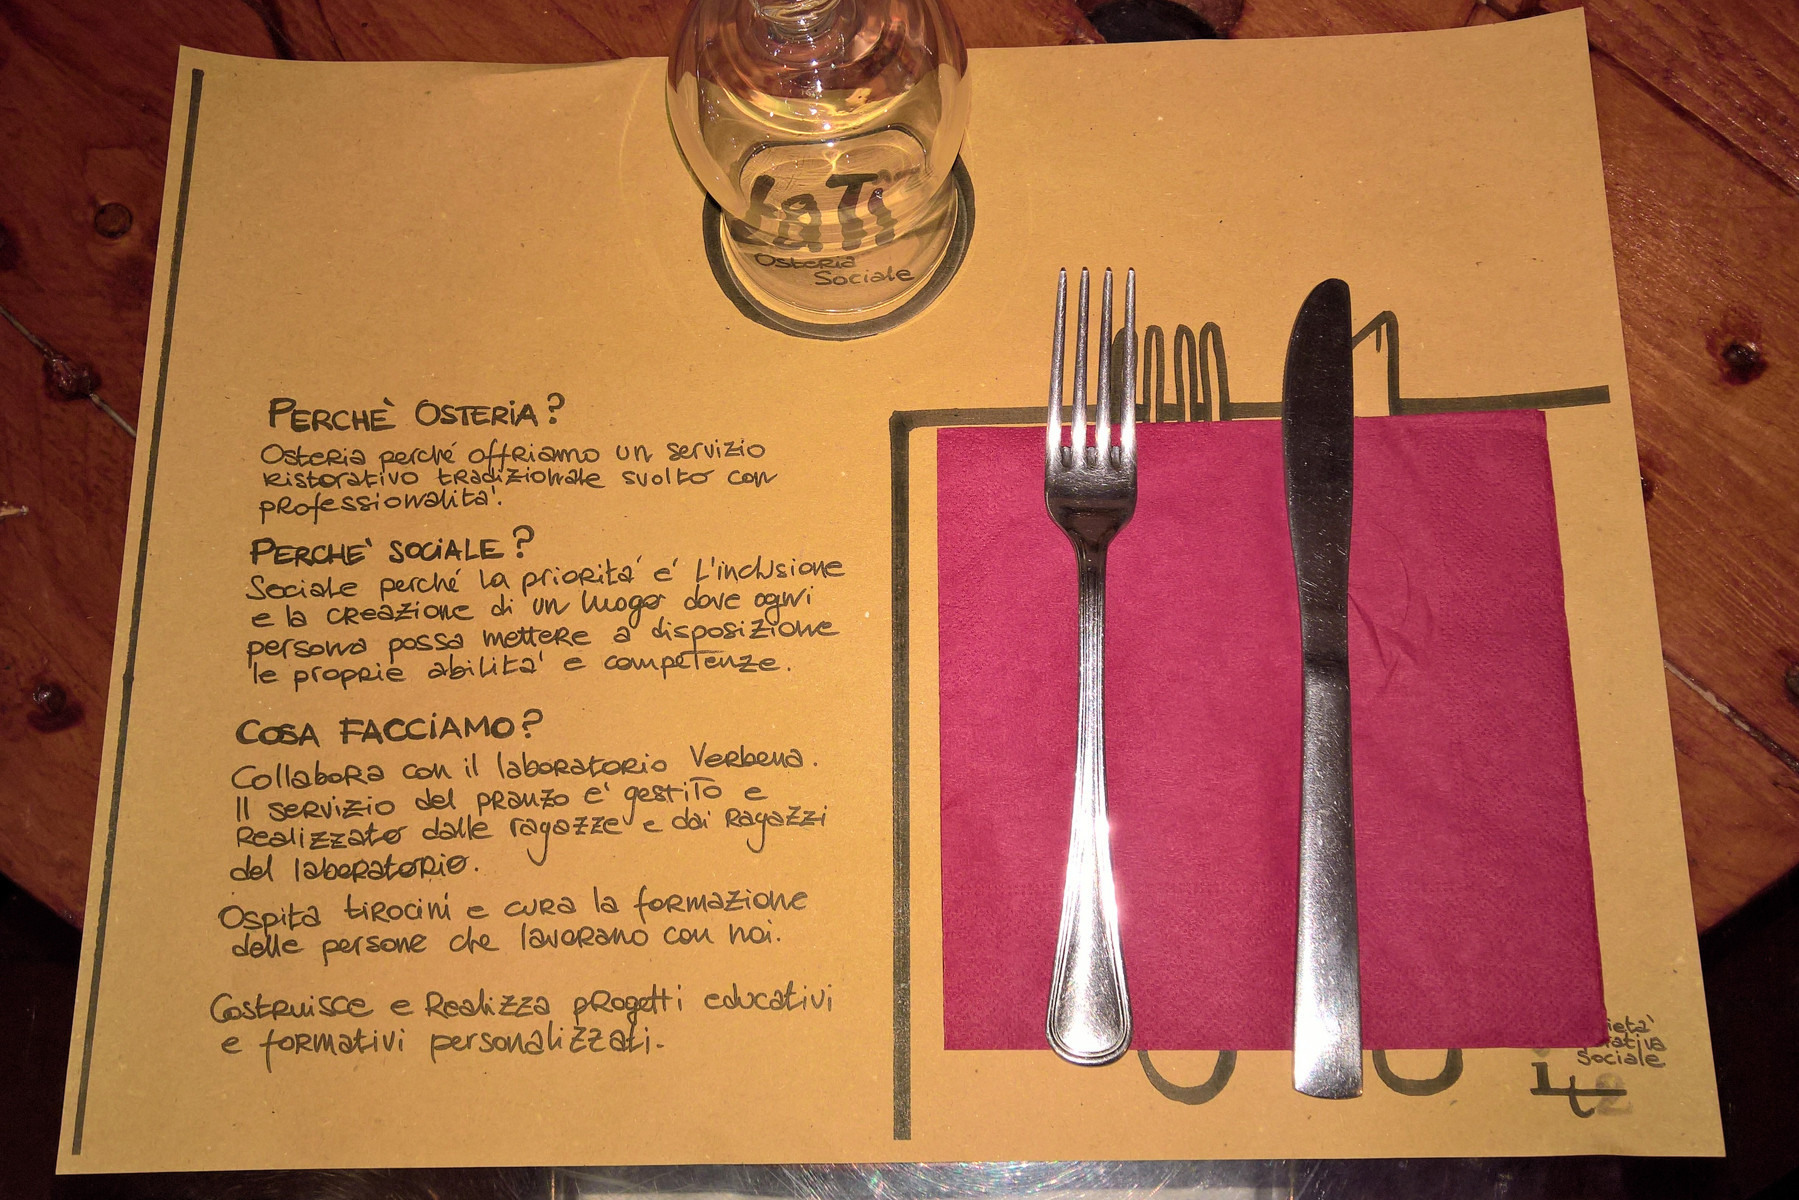 LaTi
Osteria
Sociale
PERCHÈ OSTERIA?
Osteria perché offriamo un servizio
ristorativo tradizionale svolto con
professionalita'.
PERCHE' SOCIALE?
Sociale perché la priorita' e' L'inclusione
e la creazione di un luogo dove ogni
persona possa mettere a disposizione
le proprie abilita' e competenze.
COSA FACCIAMO?
Collabora con il laboratorio Verbena.
Il servizio del pranzo e' gestito e
Realizzato dalle ragazze e dai Ragazzi
del laboratorio.
Ospita tirocini e cura la formazione
delle persone che lavorano con noi.
Costruisce e Realizza progetti educativi
e formativi personalizzati.
Sociale
it2